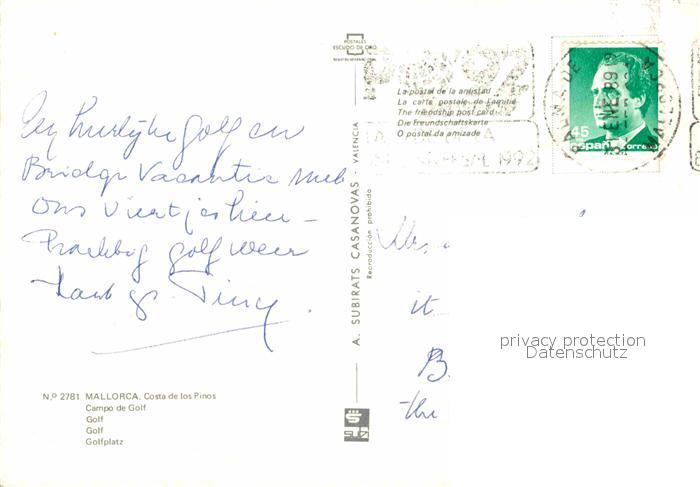 heerlijke golf en
Bridge Vacantie met
Ons Viertjes hier –
Prachtig golf weer
Hart. gr. Tiny.
Nº 2781 MALLORCA. Costa de los Pinos
Campo de Golf
Golf
Golf
Golfplatz
POSTALES
ESCUDO DE ORO
A. SUBIRATS CASANOVAS - VALENCIA
Reproducción prohibida
La postal de la amistad
La carte postale de l'amitié
The friendship post card
Die Freundschaftskarte
O postal da amizade
1992
PALMA DE MALLORCA
ENE 89
45
españa correos
it
B.
privacy protection
Datenschutz